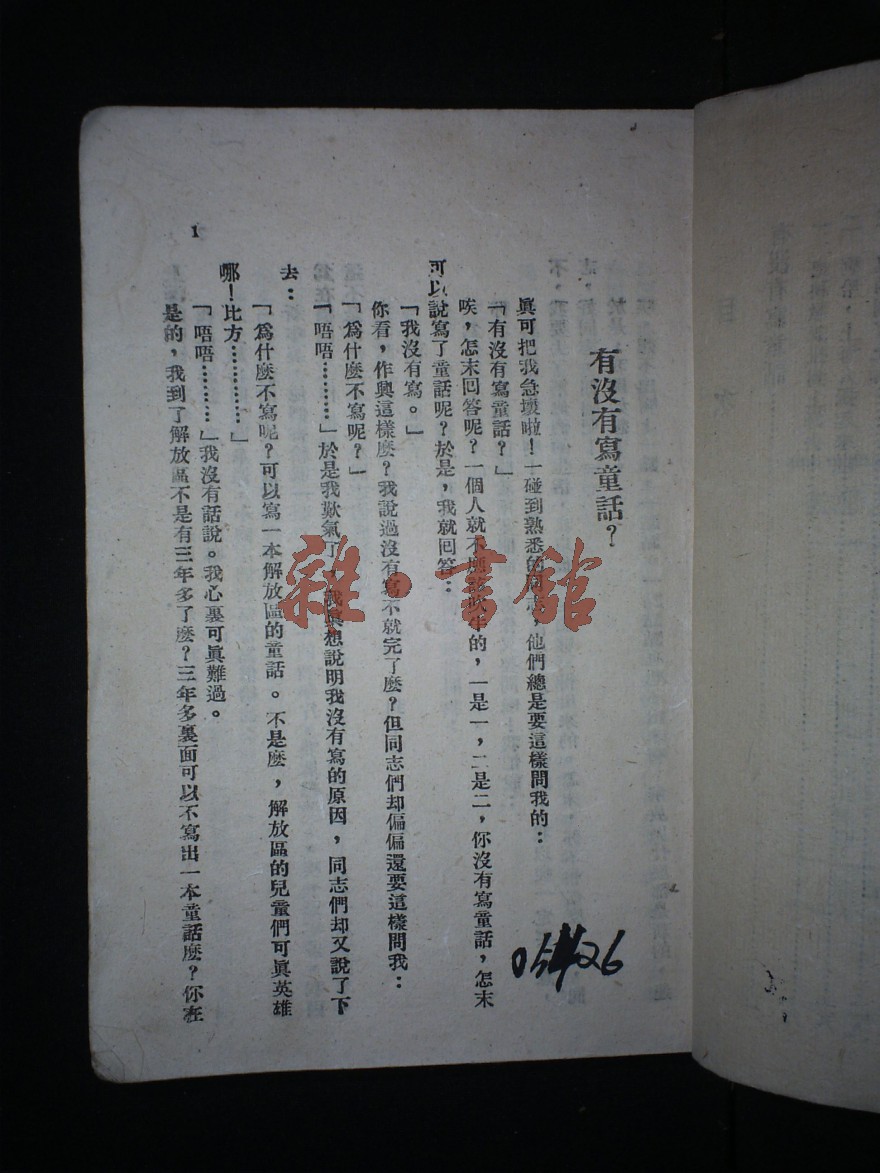 有沒有寫童話?
眞可把我急壞啦!一碰到熟悉的同志,他們總是要這樣問我的:
「有沒有寫童話?」
唉,怎末回答呢?一個人就不應該吹牛的,一是一,二是二,你沒有寫童話,怎末
可以說寫了童話呢?於是,我就回答:
「我沒有寫。」
你看,作興這樣麽?我說過沒有寫不就完了麽?但同志們却偏偏還要這樣問我:
「爲什麽不寫呢?」
「唔唔………」於是我歎氣了,我眞想說明我沒有寫的原因,同志們却又說了下
去:
「爲什麽不寫呢?可以寫一本解放區的童話。不是麽,解放區的兒童們可眞英雄
哪!比方…………」
「唔唔………」我沒有話說。我心裏可眞難過。
是的,我到了解放區不是有三年多了麽?三年多裏面可以不寫出一本童話麽?你在
1
雜·書館